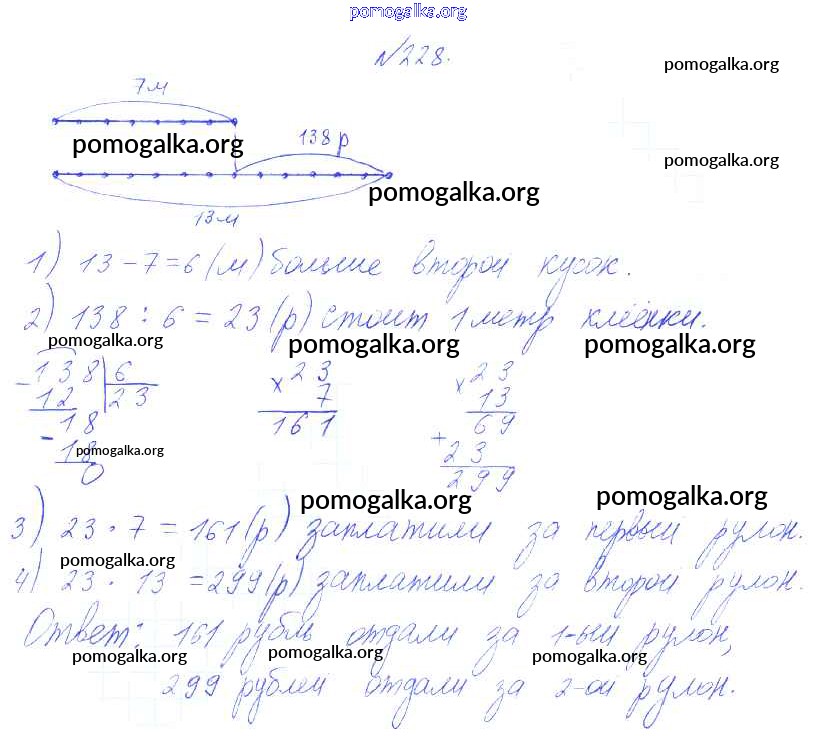 pomogalka.org
№228.
pomogalka.org
7м
138 р
pomogalka.org
pomogalka.org
pomogalka.org
13м
1) 13 - 7 = 6 (м) больше второй кусок.
2) 138 : 6 = 23 (р) стоит 1 метр клеёнки.
pomogalka.org pomogalka.org
- 138 | 6 × 23 × 23
12 23 7 13
18 161 69
- 18 pomogalka.org + 23
0 299
pomogalka.org pomogalka.org
3) 23 · 7 = 161 (р) заплатили за первый рулон.
pomogalka.org
4) 23 · 13 = 299 (р) заплатили за второй рулон.
Ответ: 161 рубль отдали за 1-ый рулон,
pomogalka.org pomogalka.org pomogalka.org
299 рублей отдали за 2-ой рулон.